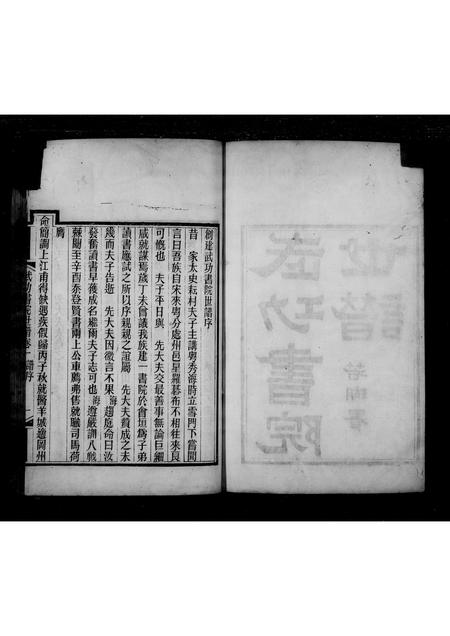 武功書院
世譜
創建武功書院世譜序
昔　家太史耘村夫子主講粵秀海時立雪門下嘗聞
言曰吾族自宋來粵分處州邑星羅棊布不相往來良
可慨也　夫子平日與　先大夫交最善事無論巨細
咸就謀焉歲丁未曾議我族建一書院於會垣爲子弟
讀書應試之所以序親親之誼屬　先大夫贊成之未
幾而夫子告逝　先大夫因徵言不果海趨庭命曰汝
發奮讀書早獲成名繼爾夫子志可也海遵嚴訓八戰
棘闈至辛酉忝登賢書兩上公車薦弗售就職司馬荷
膺
命簡調上江甫得缺遇疾假歸丙子秋就醫羊城適岡州
武功書院世譜卷一　譜序　一